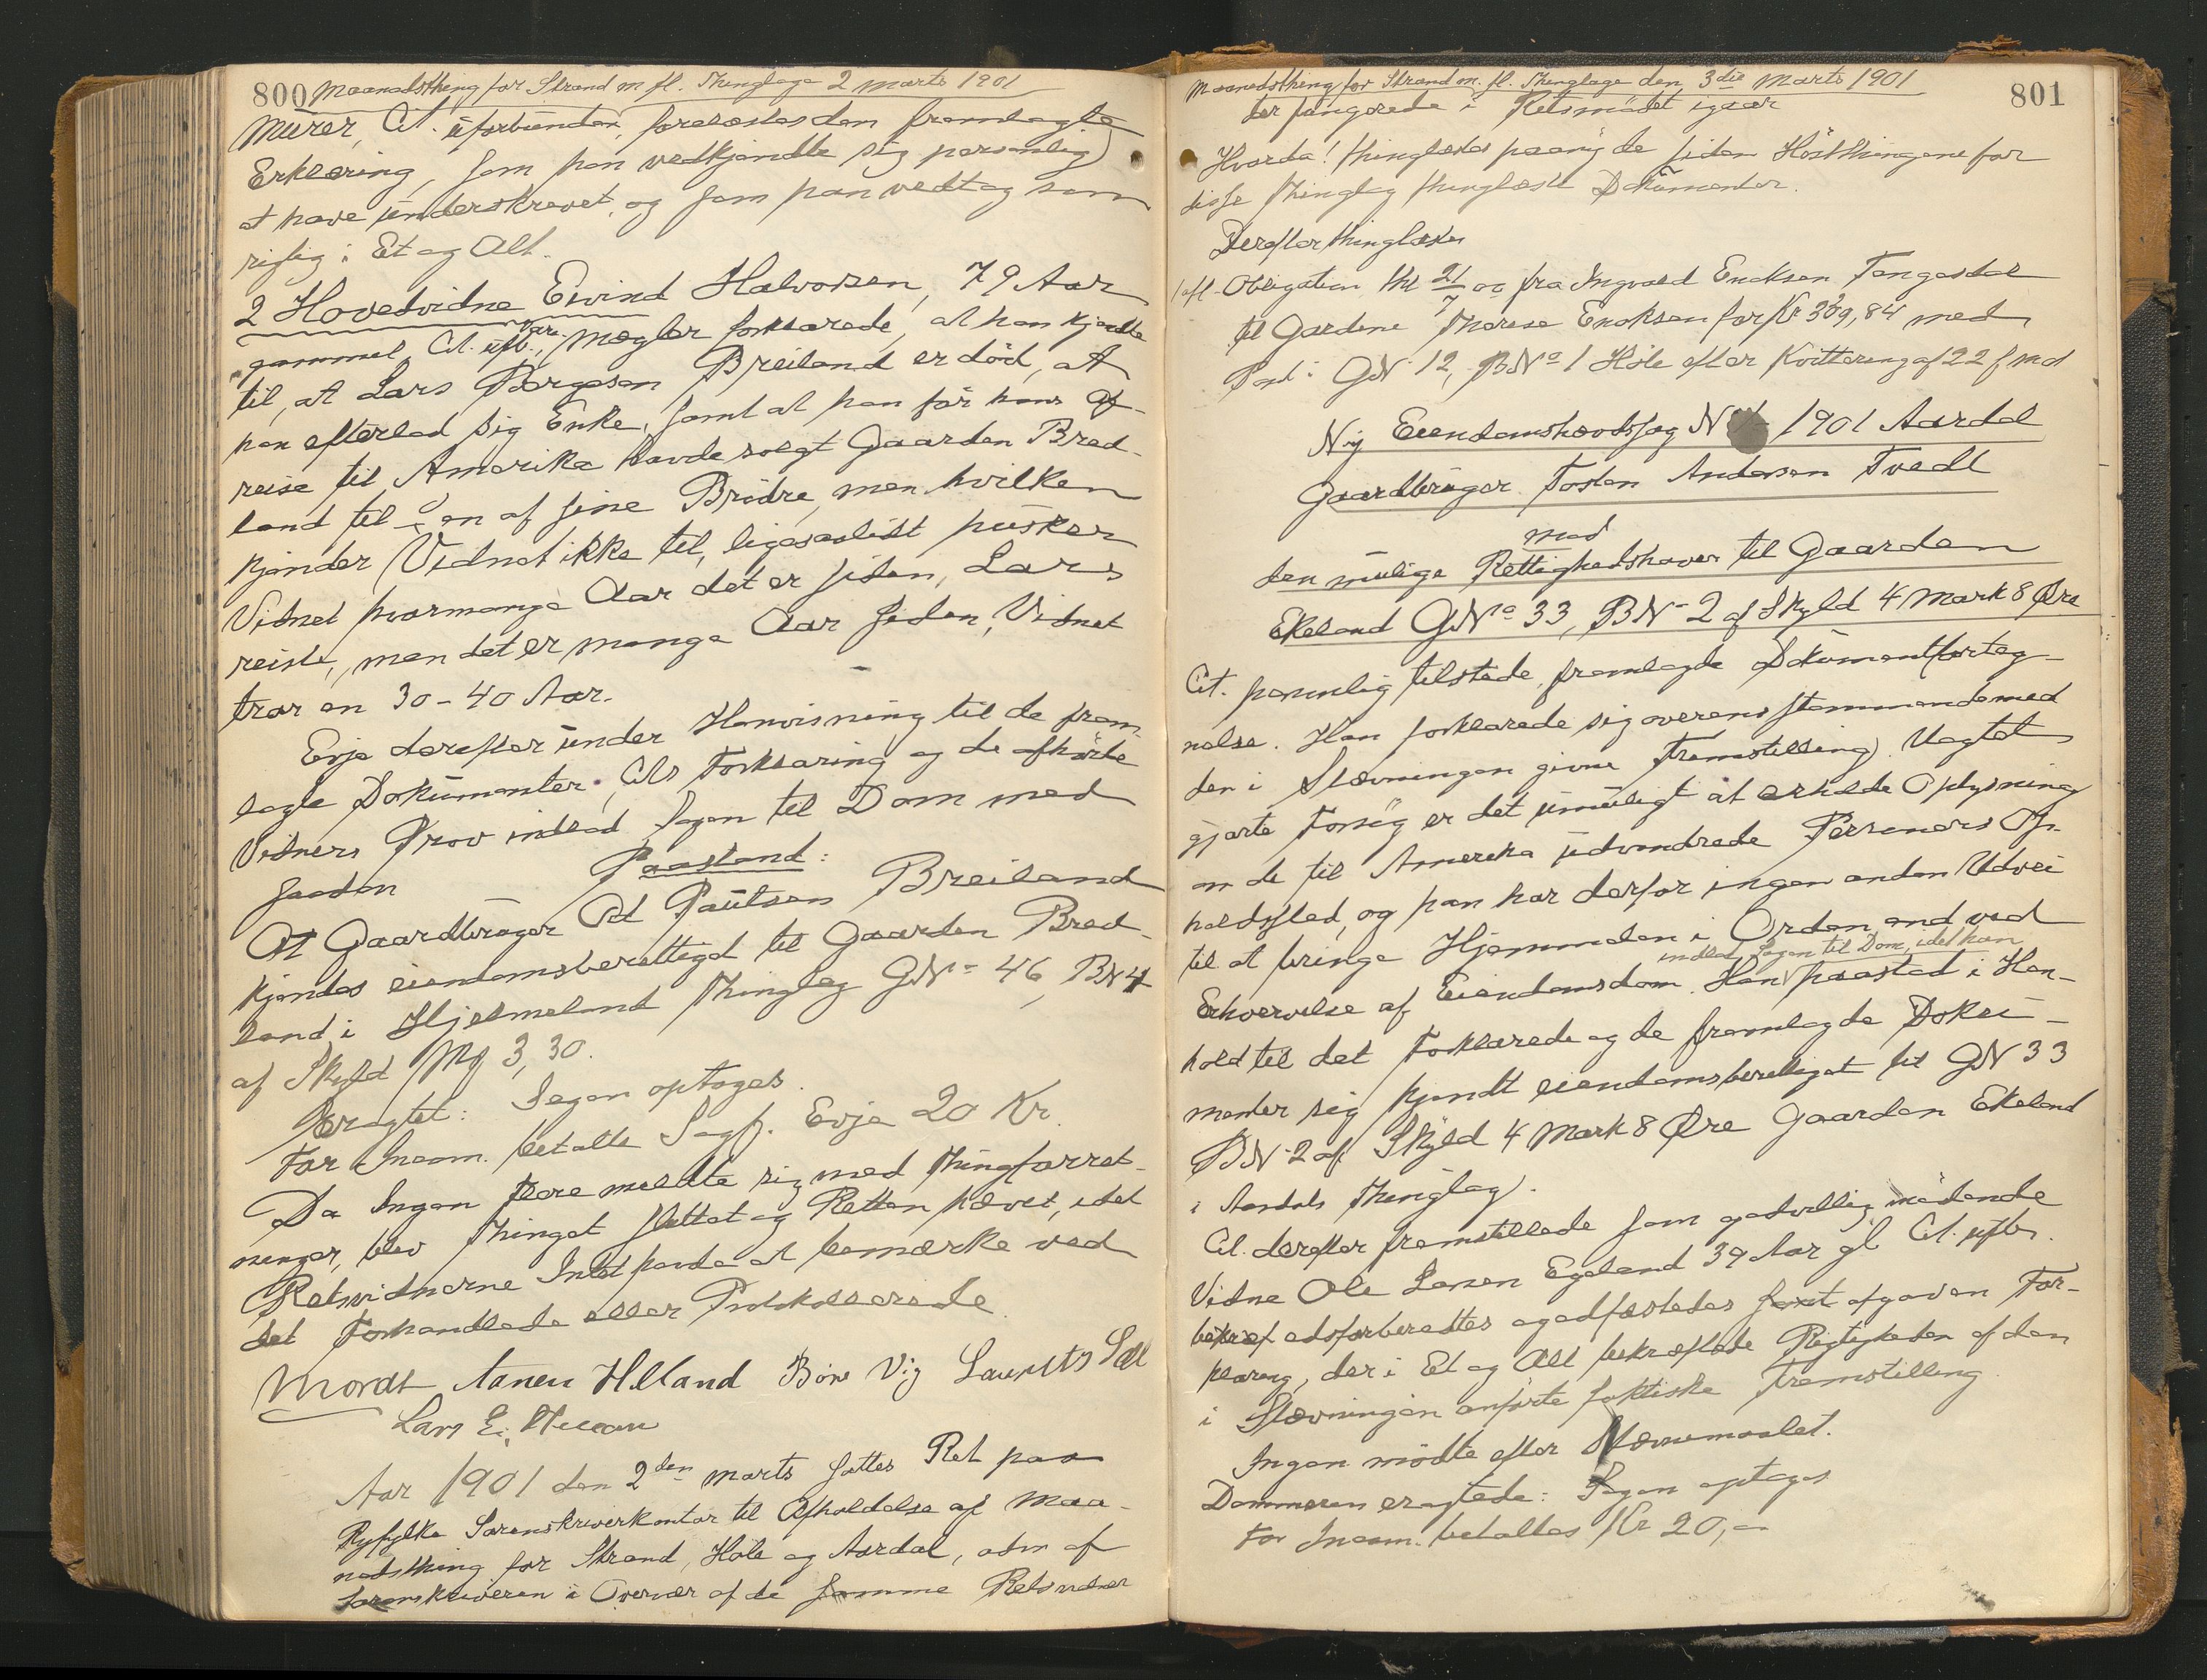 800 Maanedsthing for Strand m fl. Thinglage 2 marts 1901
Murer, Cit. uforbunden, forelæstes den fremlagte
Erklæring, som han vedkjendte sig personlig
at have underskrevet, og som han vedtog som
rigtig i Et og Alt.
2 Hovedvidne Eivind Halvorsen, 79 Aar
gammel, Cit. ufb., Vare-
mægler forklarede, at han kjendte
til, at Lars Børgesen Breiland er död, at
han efterlod sig Enke, samt at han før hans Af-
reise til Amerika havde solgt Gaarden Bred-
land til en af sine Brödre, men hvilken
kjender Vidnet ikke til, ligesaalidt husker
Vidnet hvormange Aar det er siden, Lars
reiste, men det er mange Aar siden, Vidnet
tror en 30-40 Aar.
Evje derefter under Henvisning til de frem
lagte Dokumenter, Cits Forklaring og de afhörte
Vidners Prov indlod Sagen til Dom med
saadan Paastand:
At Gaardbruger Paulsen Breiland
kjendes eiendomsberettiget til Gaarden Bred-
land i Hjelmeland Thinglag GNo 46, BN 4
af Skyld Mk 3,30.
Eragtet: Sagen optages.
For Incam. betalte Sagf. Evje 20 Kr.
Da Ingen flere meldte sig med Thingforret-
ninger, blev Thinget sluttet og Retten hævet, idet
Retsvidnerne Intet havde at bemærke ved
det Forhandlede eller Protokollerede
Mordt Hilland Böre Vig Laurits
Lars E.
Aar 1901 den 2den marts sattes Ret paa
Ryfylke Sorenskriverkontor til Afholdelse af Maa-
nedsthing for Strand, Höle og Aardal, adm af
Sorenskriveren i Overvær af de samme Retsvidner
Maanedsthing for Strand m. fl. Thinglage den 3die Marts 1901 801
der fungerede i Retsmödet igaar
Hvorda! thinglæstes paany de siden Höstthingene for
disse Thinglag thinglæste Dokumenter.
Derefter thinglæstes
1 afl. Obligation thl 21/7 00 fra Ingvald Enoksen Tengesdal
til Gardene Therese Enoksen for Kr 369,84 med
Pant i GN 12, BNo 1 Höle efter Kvittering af 22 f md
Ny Eiendomshævdssag N 1901 Aardal
Gaardbruger Tosten Andersen Tvedt
mod
den mulige Rettighedshaver til Gaarden
Ekeland GNo 33, BN 2 af Skyld 4 Mark 8 Øre
Cit. personlig tilstede, fremlagde Dokumentforteg-
nelse. Han forklarede sig overensstemmende med
den i Stævningen givne Fremstilling. Uagtet
gjorte Forsög er det umuligt at erholde Oplysning
om de til Amerika udvandrede Personers Op-
holdssted, og han har derfor ingen anden Udvei
til at bringe Hjemmelen i Orden end ved
indlod Sagen til Dom, idet han
Erhvervelse af Eiendomsdom. Han paastod i Hen-
hold til det Forklarede og de fremlagde Doku-
menter sig kjendt eiendomsberettiget til GN 33
BN 2 af Skyld 4 Mark 8 Øre Gaarden Ekeland
i Aardals Thinglag.
Cit. derefter fremstillede som godvillig mödende
Vidne Ole Larsen Egeland 39 Aar gl Cit. ufb.
edsforberedtes og edfæstedes samt afgav en For-
klaring, der i Et og Alt bekræftede Rigtigheden af den
i Stævningen anförte faktiske Fremstilling
Ingen mödte efter Stævnemaalet.
Dommeren eragtede: Sagen optages
For Incam. betaltes Kr 20,-